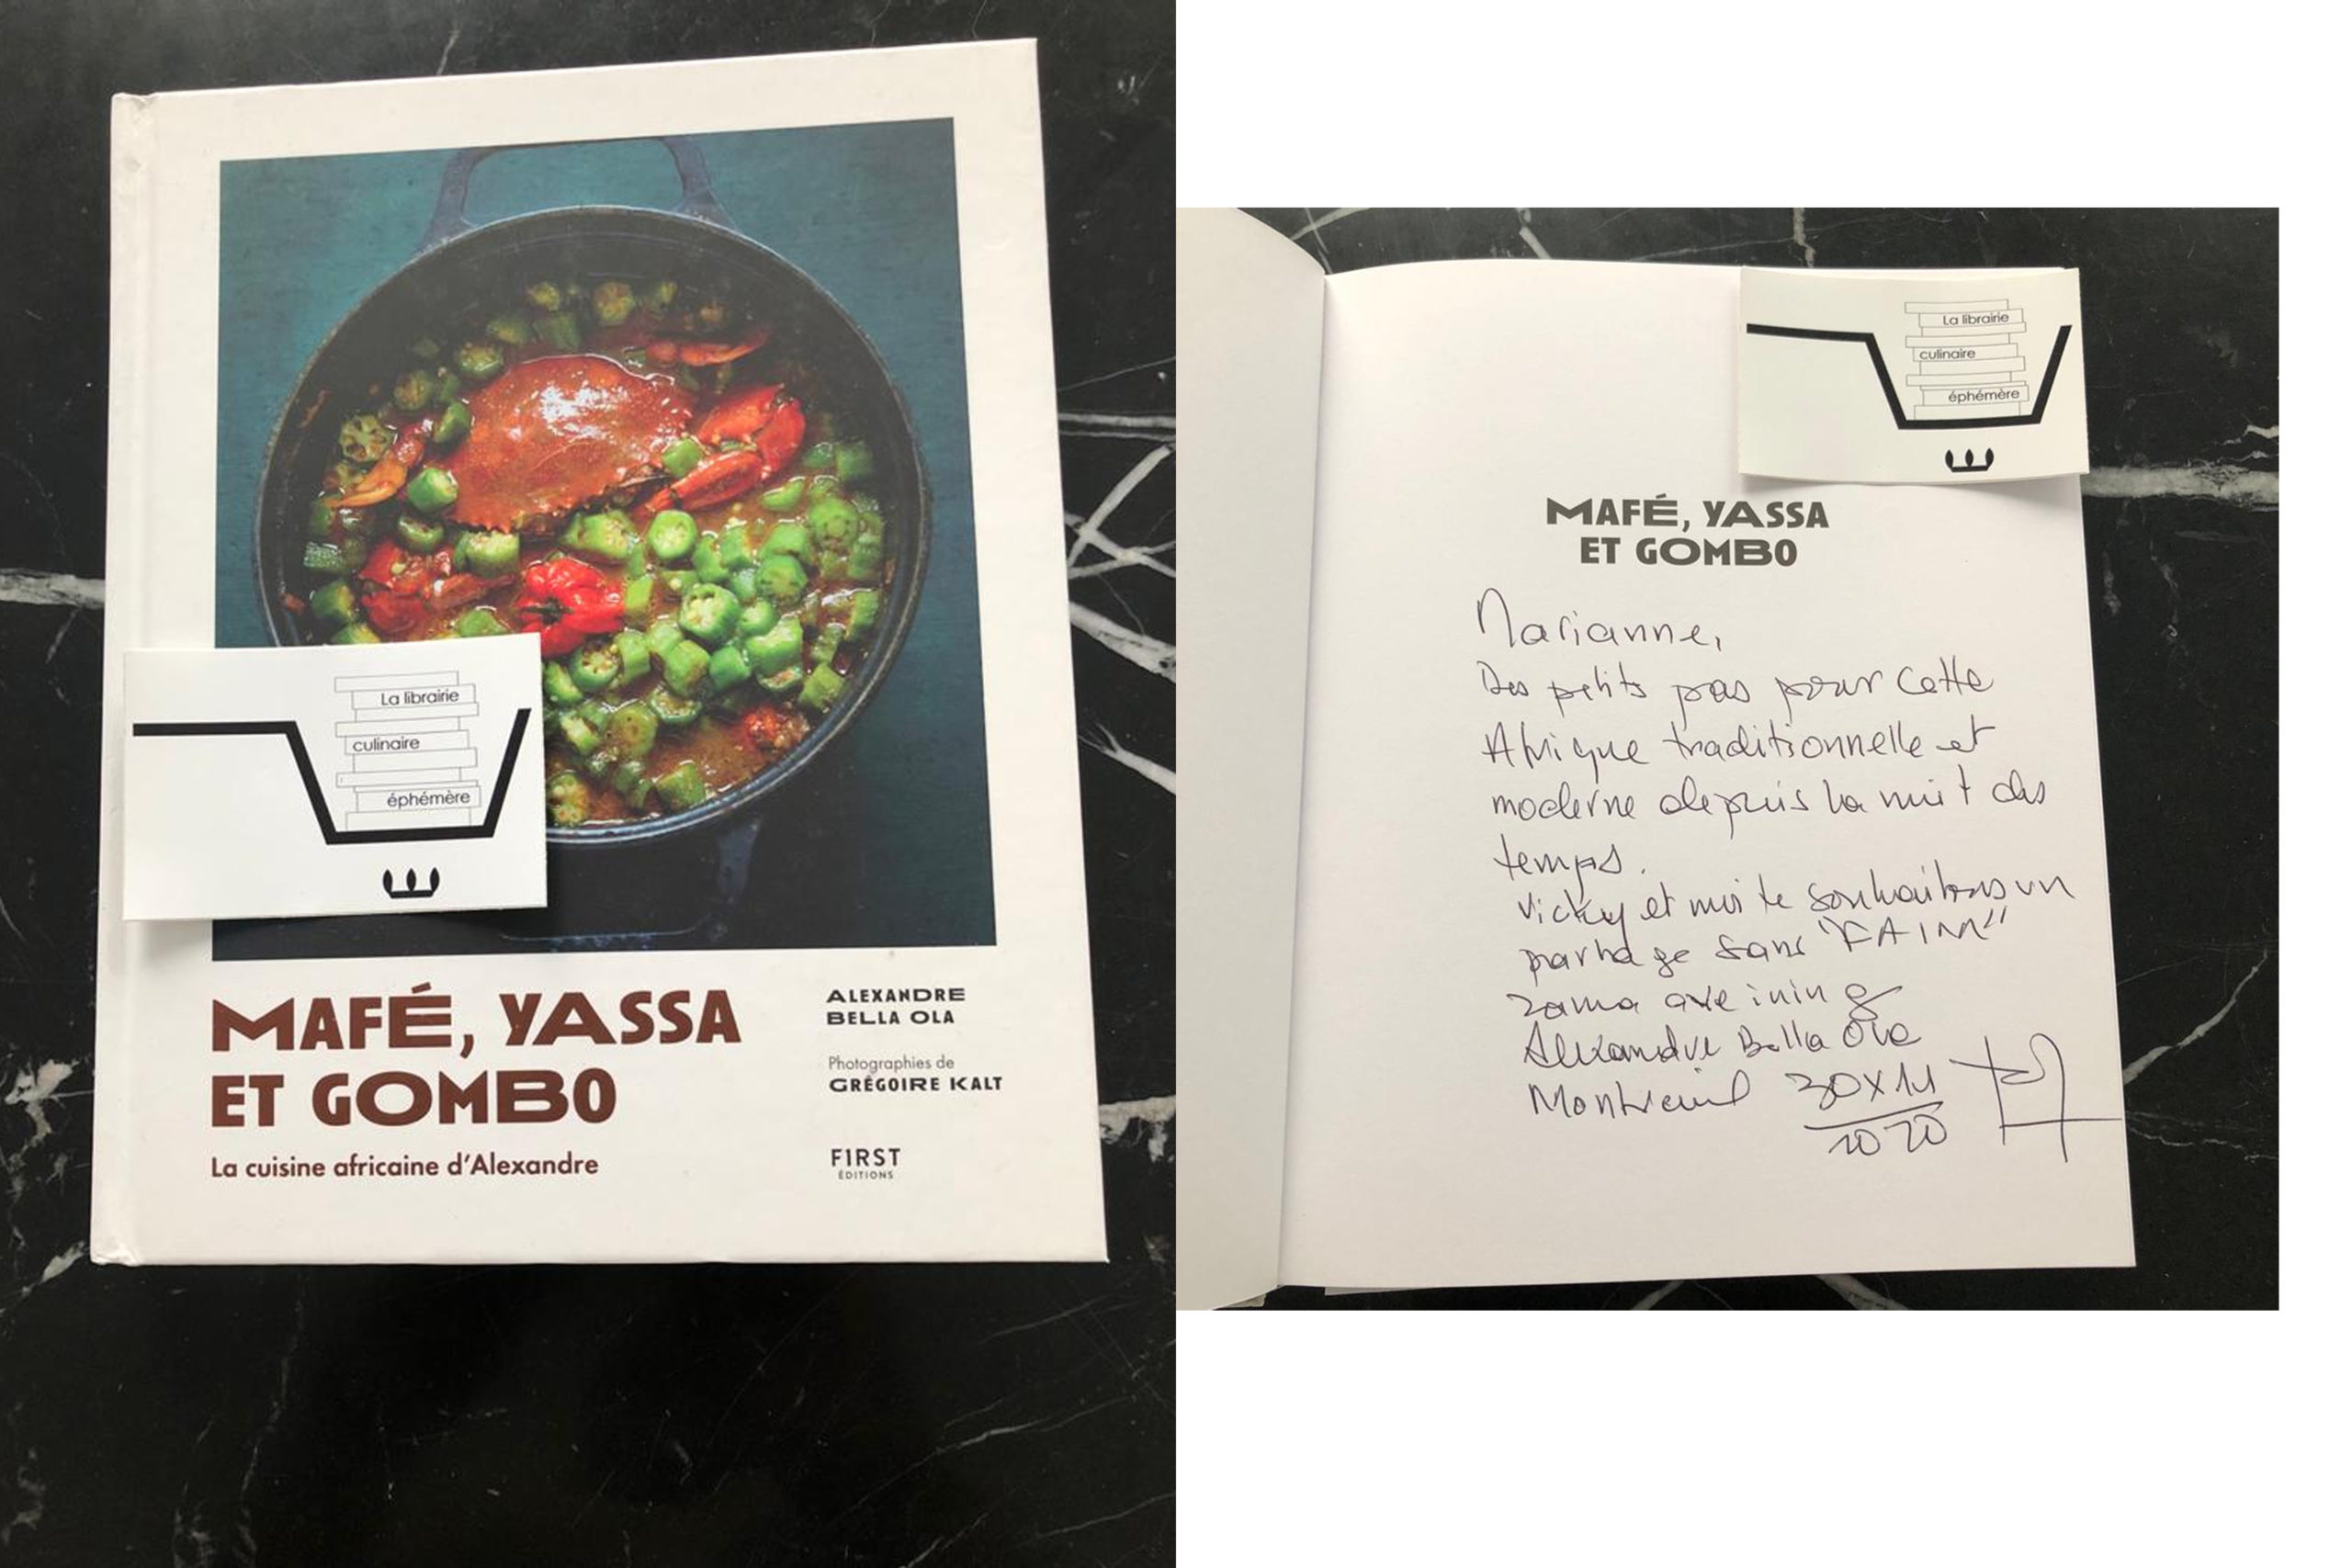 La librairie
culinaire
éphémère
MAFÉ, YASSA
ET GOMBO
La cuisine africaine d'Alexandre
ALEXANDRE
BELLA OLA
Photographies de
GRÉGOIRE KALT
FIRST
ÉDITIONS
La librairie
culinaire
éphémère
MAFÉ, YASSA
ET GOMBO
Marianne,
Des petits pas pour cette
Afrique traditionnelle et
moderne depuis la nuit des
temps.
Vicky et moi te souhaitons un
partage sans "FAIM"
Alexandre Bella Ola
Montreuil 30 X 11
2020